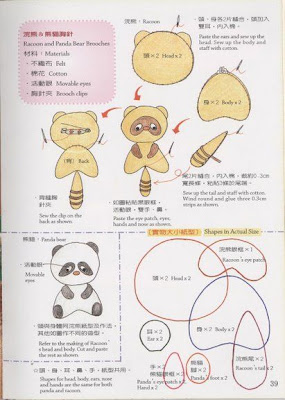 浣熊&熊貓胸針
Racoon and Panda Bear Brooches
材料‧Materials
‧不織布 Felt
‧棉花 Cotton
‧活動眼 Movable eyes
‧胸針夾 Brooch clips
浣熊‧Racoon
‧頭、身各2片縫合，頭加入
雙耳，內入棉。
Paste the ears and sew up the
head. Sew up the body and
staff with cotton.
頭×2 Head x 2
身×2 Body x 2
(背) Back
‧背縫胸
針夾
Sew the clip on the
back as shown.
‧如圖粘貼黑眼框、
活動眼、雙手、鼻。
Paste the eye patch, eyes,
hands and nose as shown.
尾2片縫合，內入棉，
Sew up the tail and staff with cotton.
Wind round and glue three 0.3cm
strips as shown.
熊貓‧Panda bear
‧活動眼
Movable
eyes
‧頭與身體同浣熊紙型及作法，
其他如圖作不同的造型。
Refer to the making of Racoon'
s head and body. Cut and paste
the rest as shown.
※頭、身、耳、鼻、手，紙型共用。
Shapes for head, body, ears, nose
and hands are the same for both
panda and racoon.
(實物大小紙型) Shapes in Actual Size
浣熊眼框×1
Racoon's eye patch
頭×2
Head x 2
耳×2
Ear x 2
身×2 Body x 2
手×2
熊貓眼框×2
Panda's eye patch x 2
Hand x 2
熊貓
腳×2
Panda's foot x 2
浣熊尾×2
Racoon's tail x 2
39